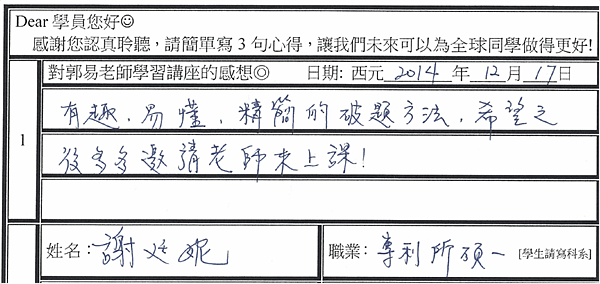 Dear 學員您好☺
感謝您認真聆聽，請簡單寫 3 句心得，讓我們未來可以為全球同學做得更好!
對郭易老師學習講座的感想◎ 日期: 西元 2014 年 12 月 17 日
1
有趣、易懂，精簡的破題方法，希望之
後多多邀請老師來上課!
姓名：謝廷妮 職業：專利所碩一 [學生請寫科系]